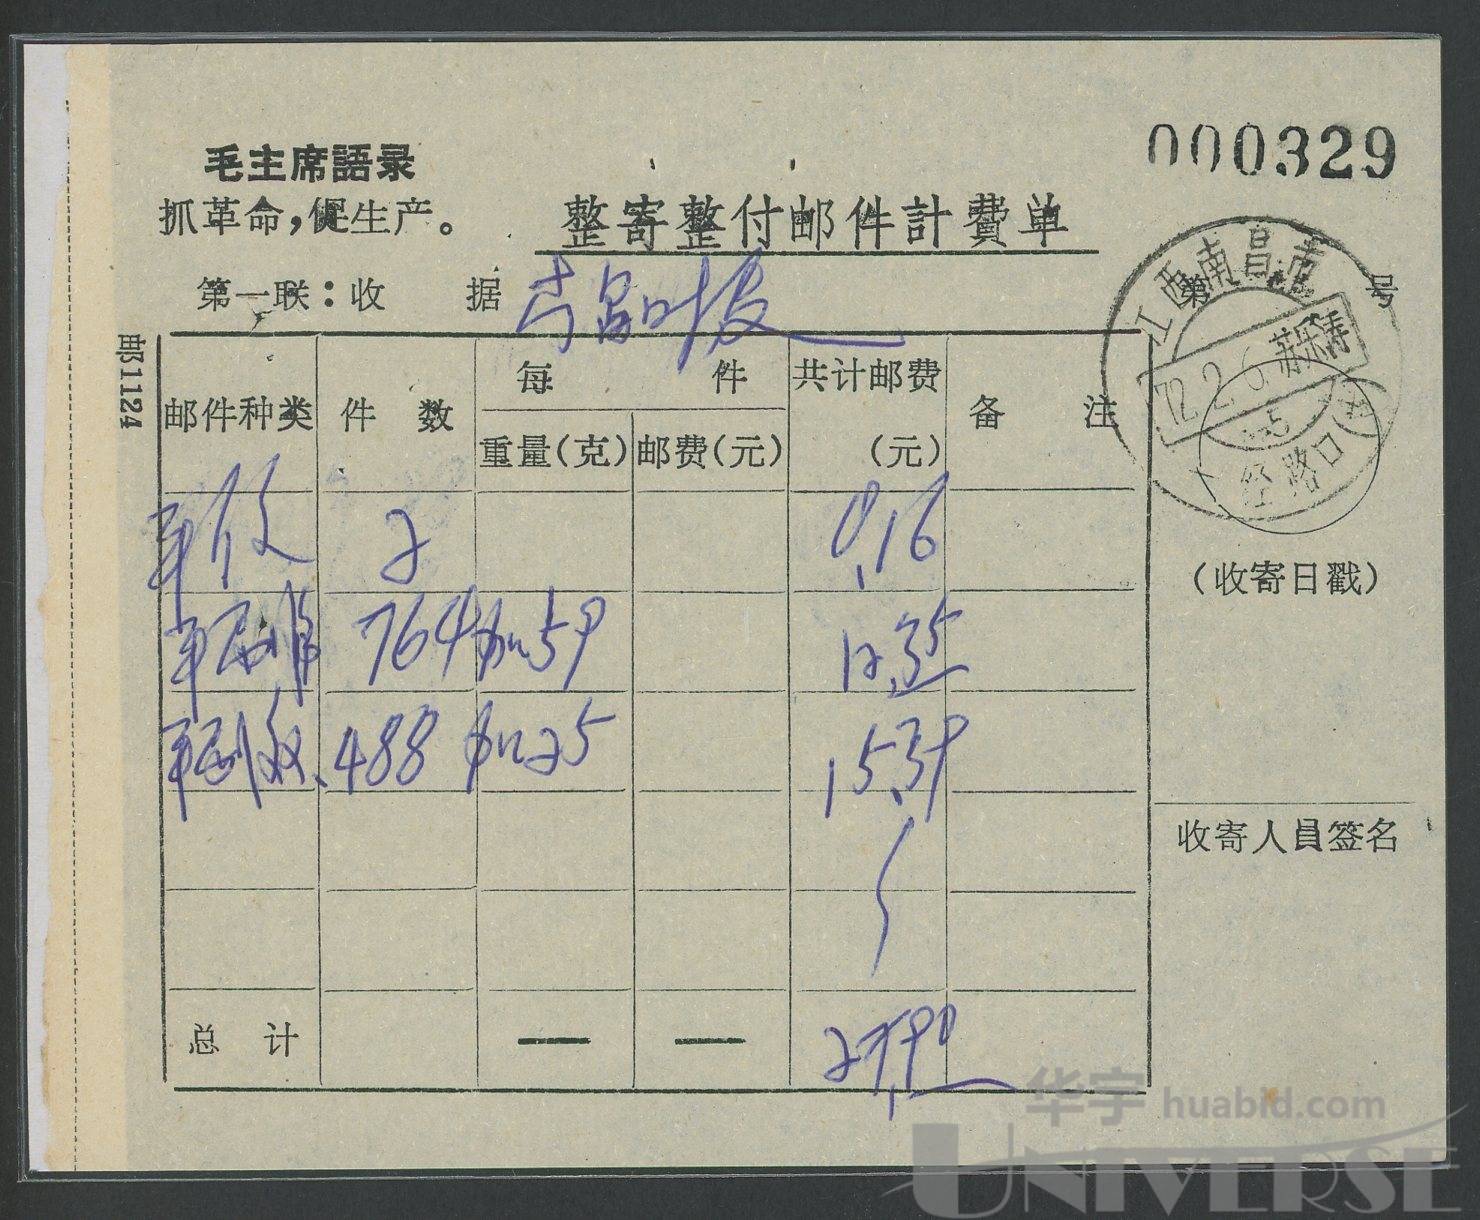 000329
毛主席語录
抓革命,促生产。
整寄整付邮件計費单
第一联:收 据
第 号
江西南昌市
72.2.6
邮1124
邮件种类 件 数 每 件 共计邮费(元) 备 注
重量(克) 邮费(元)
2 0.16
764 加59 12.35
488 加25 15.39
总 计 — — 27.90
(收寄日戳)
收寄人員签名
华宇 huabid.com
UNIVERSE